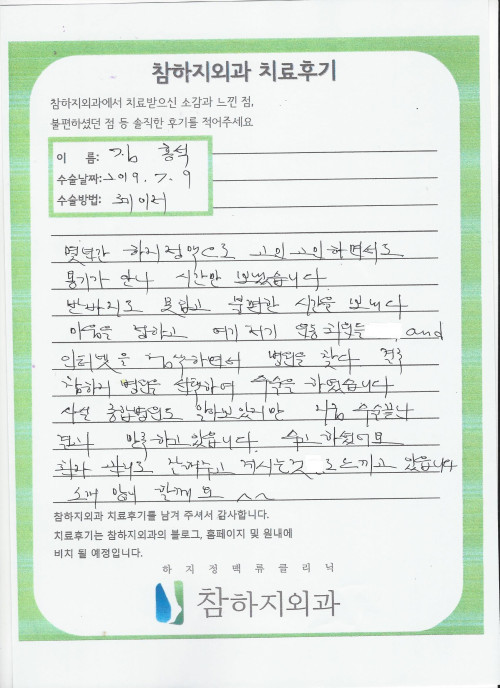 참하지외과 치료후기
참하지외과에서 치료받으신 소감과 느낀 점,
불편하셨던 점 등 솔직한 후기를 적어주세요
이 름: 김 홍석
수술날짜: 2019. 7. 9
수술방법: 레이저
몇년간 하지정맥으로 고민 고민하면서도
용기가 안나 시간만 보냈습니다
반바지도 못입고 불편한 시간을 보내다
마음을 정하고 여기 저기 and
인터넷을 검색하면서 병원을 찾다 결국
참하지 병원을 선택하여 수술을 하였습니다
사실 종합병원도 알아보았지만 지금 수술끝나
만족하고 있습니다. 수고 하셨어요
계시는것 느끼고 있습니다
소개 많이 할께요 ^^
참하지외과 치료후기를 남겨 주셔서 감사합니다.
치료후기는 참하지외과의 블로그, 홈페이지 및 원내에
비치 될 예정입니다.
하지정맥류클리닉
참하지외과